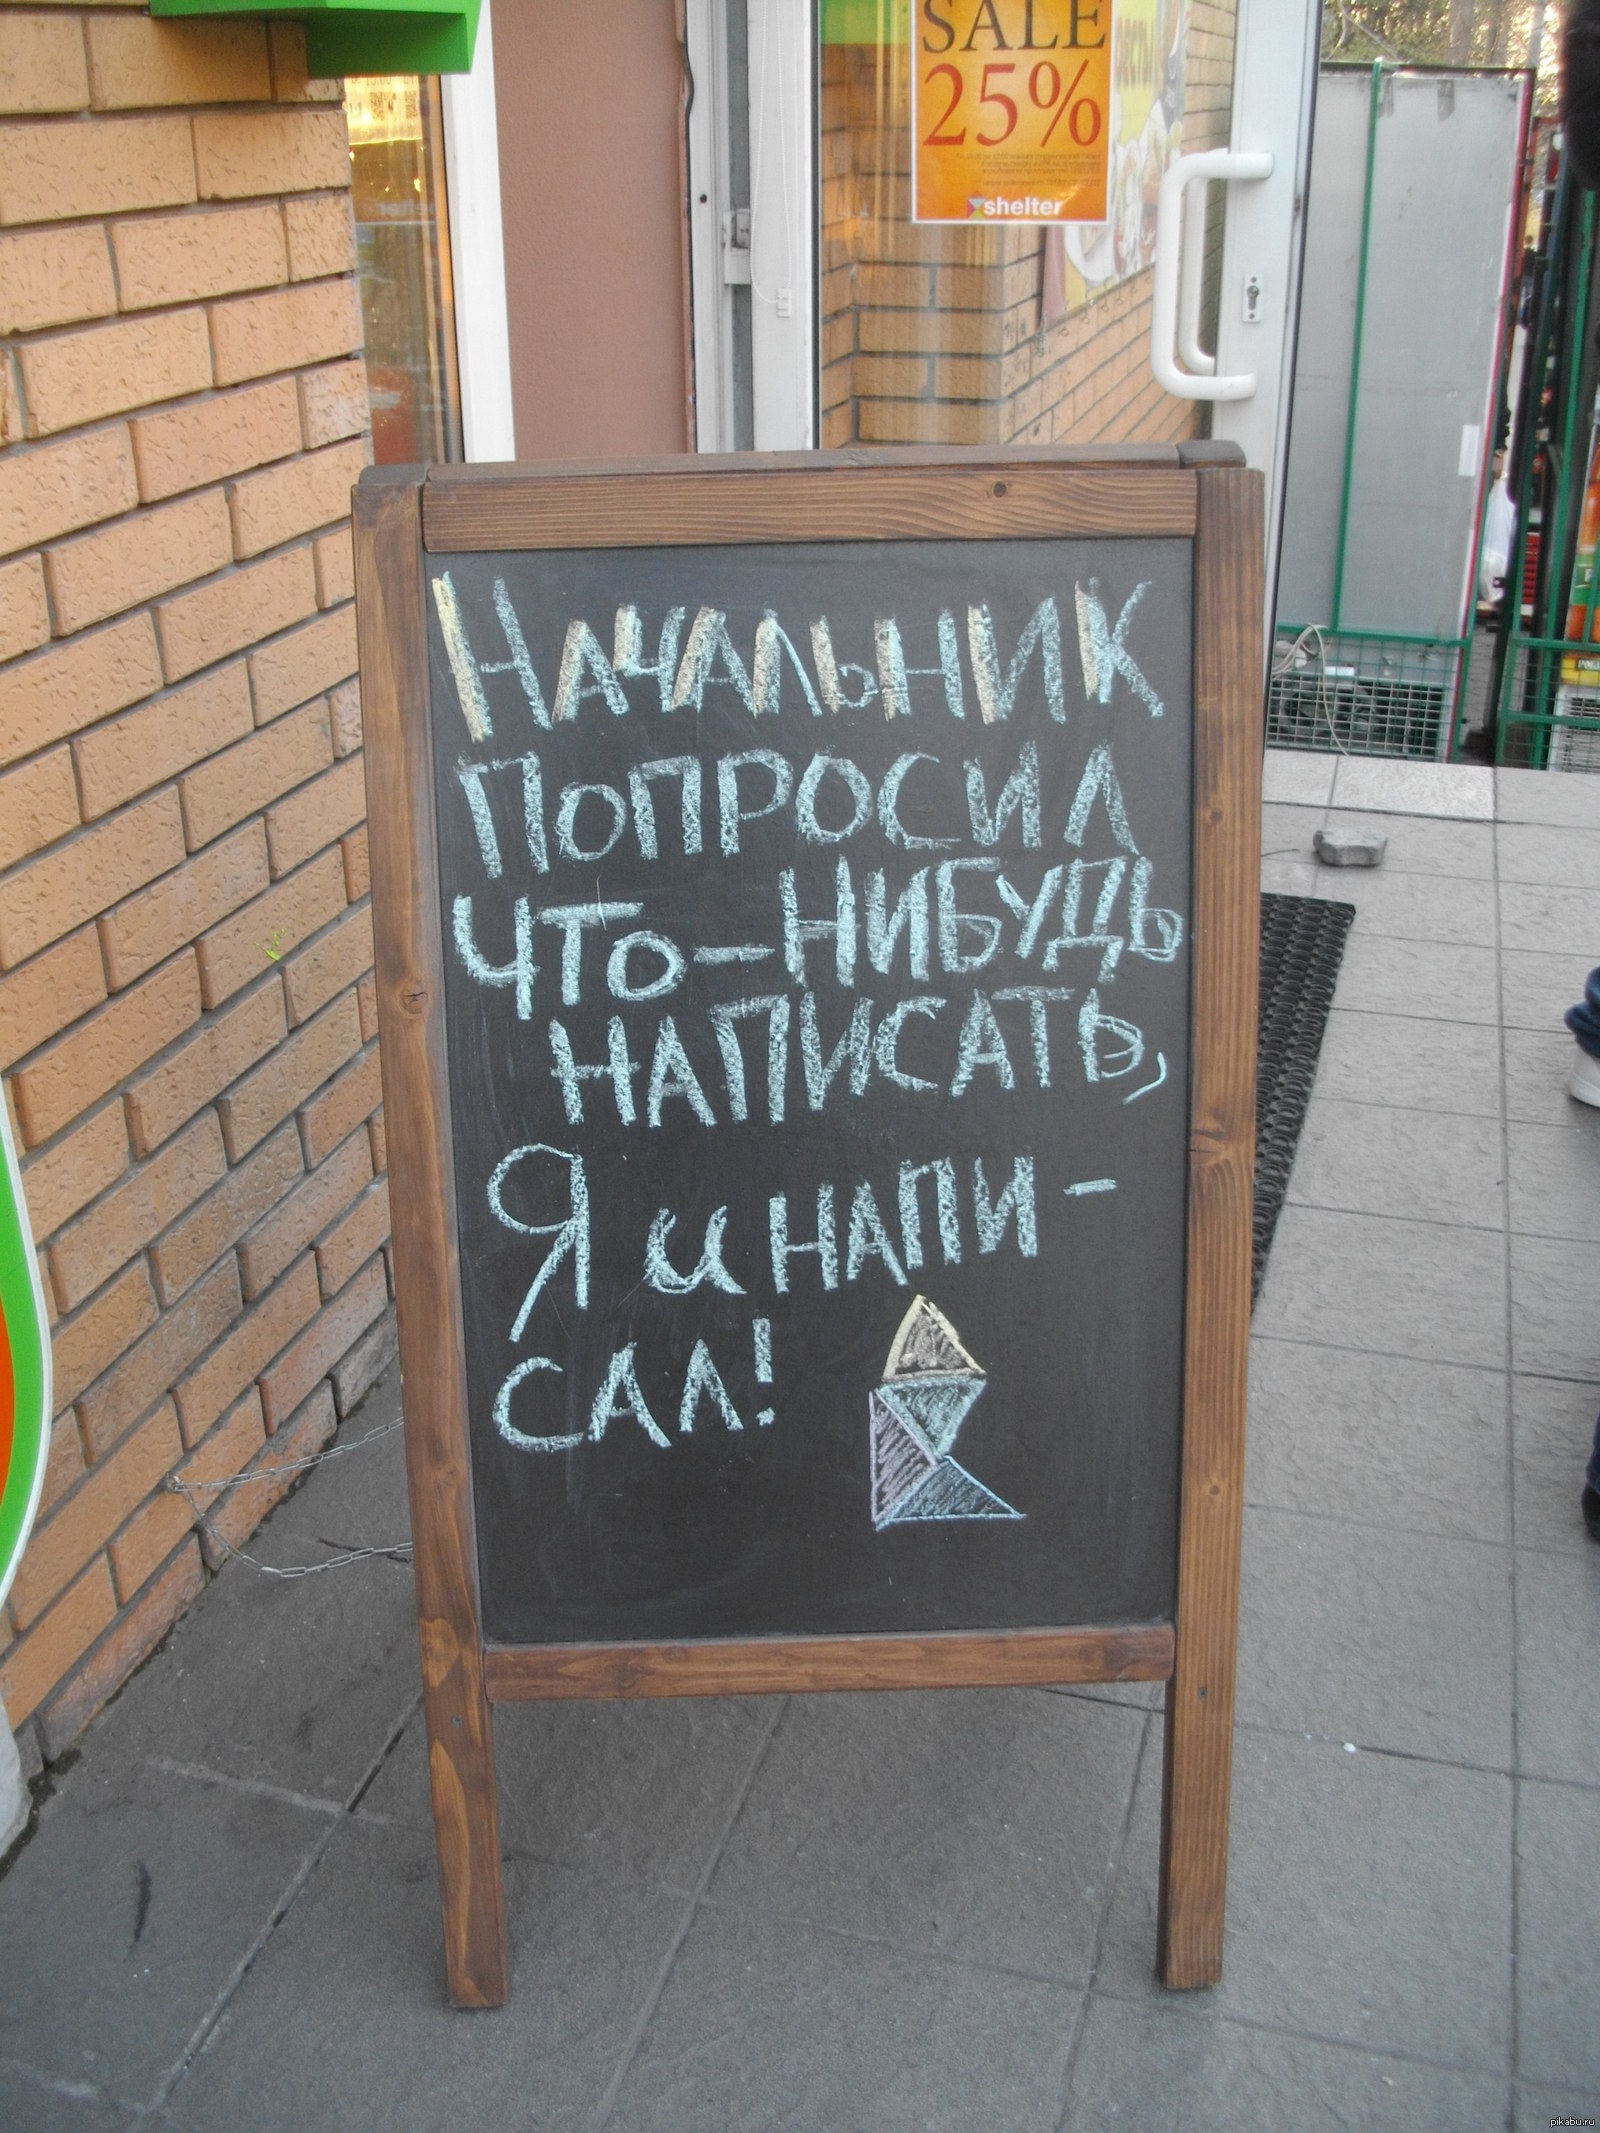 SALE
25%
shelter
Начальник
попросил
что-нибудь
написать,
Я и напи-
сал!
pikabu.ru